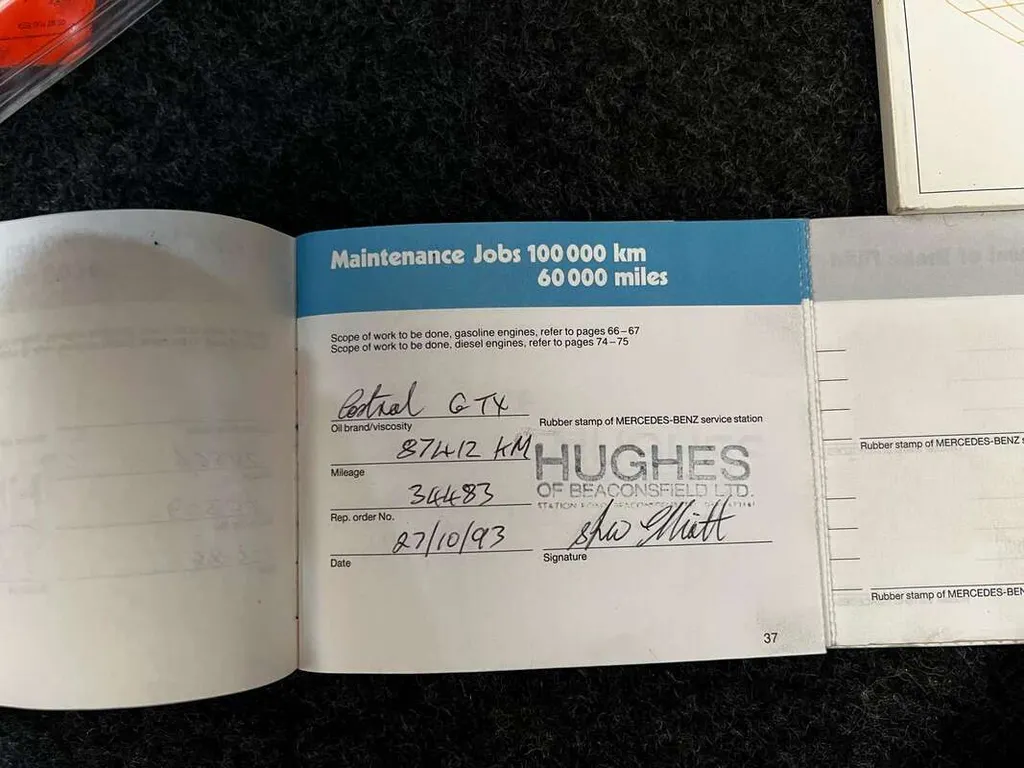 Maintenance Jobs 100 000 km
60 000 miles
Scope of work to be done, gasoline engines, refer to pages 66–67
Scope of work to be done, diesel engines, refer to pages 74–75
Castrol GTX
Oil brand/viscosity
Rubber stamp of MERCEDES-BENZ service station
87412 KM
Mileage
HUGHES
OF BEACONSFIELD LTD.
34483
Rep. order No.
27/10/93
Date
Elliott
Signature
37
Rubber stamp of MERCEDES-BENZ s
Rubber stamp of MERCEDES-BEN